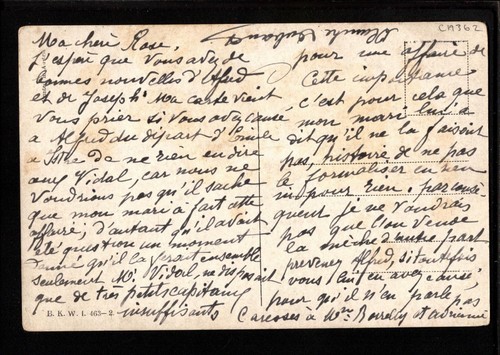 Ma chère Rose,
J'espère que vous avez de
bonnes nouvelles d'Alfred
et de Joseph. Ma carte vient
vous prier si vous avez causé
à Alfred du départ d'
à ne rien en dire
aux Vidal, car nous ne
voudrions pas qu'il sache
que mon mari a fait cette
affaire; d'autant qu'il avait
été question un moment
qu'il la ferait ensemble
seulement Mr Vidal, ne disposait
que de très petits capitaux
insuffisants
pour une affaire de
cette importance
c'est pour cela que
mon mari lui a
dit qu'il ne la faisait
pas, histoire de ne pas
le formaliser en rien
ni pour rien, par consé
quent je ne voudrais
pas que l'on vende
la mèche d'autre part
prévenez Alfred, si toutefois
vous lui en avez causé,
pour qu'il n'en parle pas
Caresses à Mme et
B. K. W. I. 463-2.
CM362